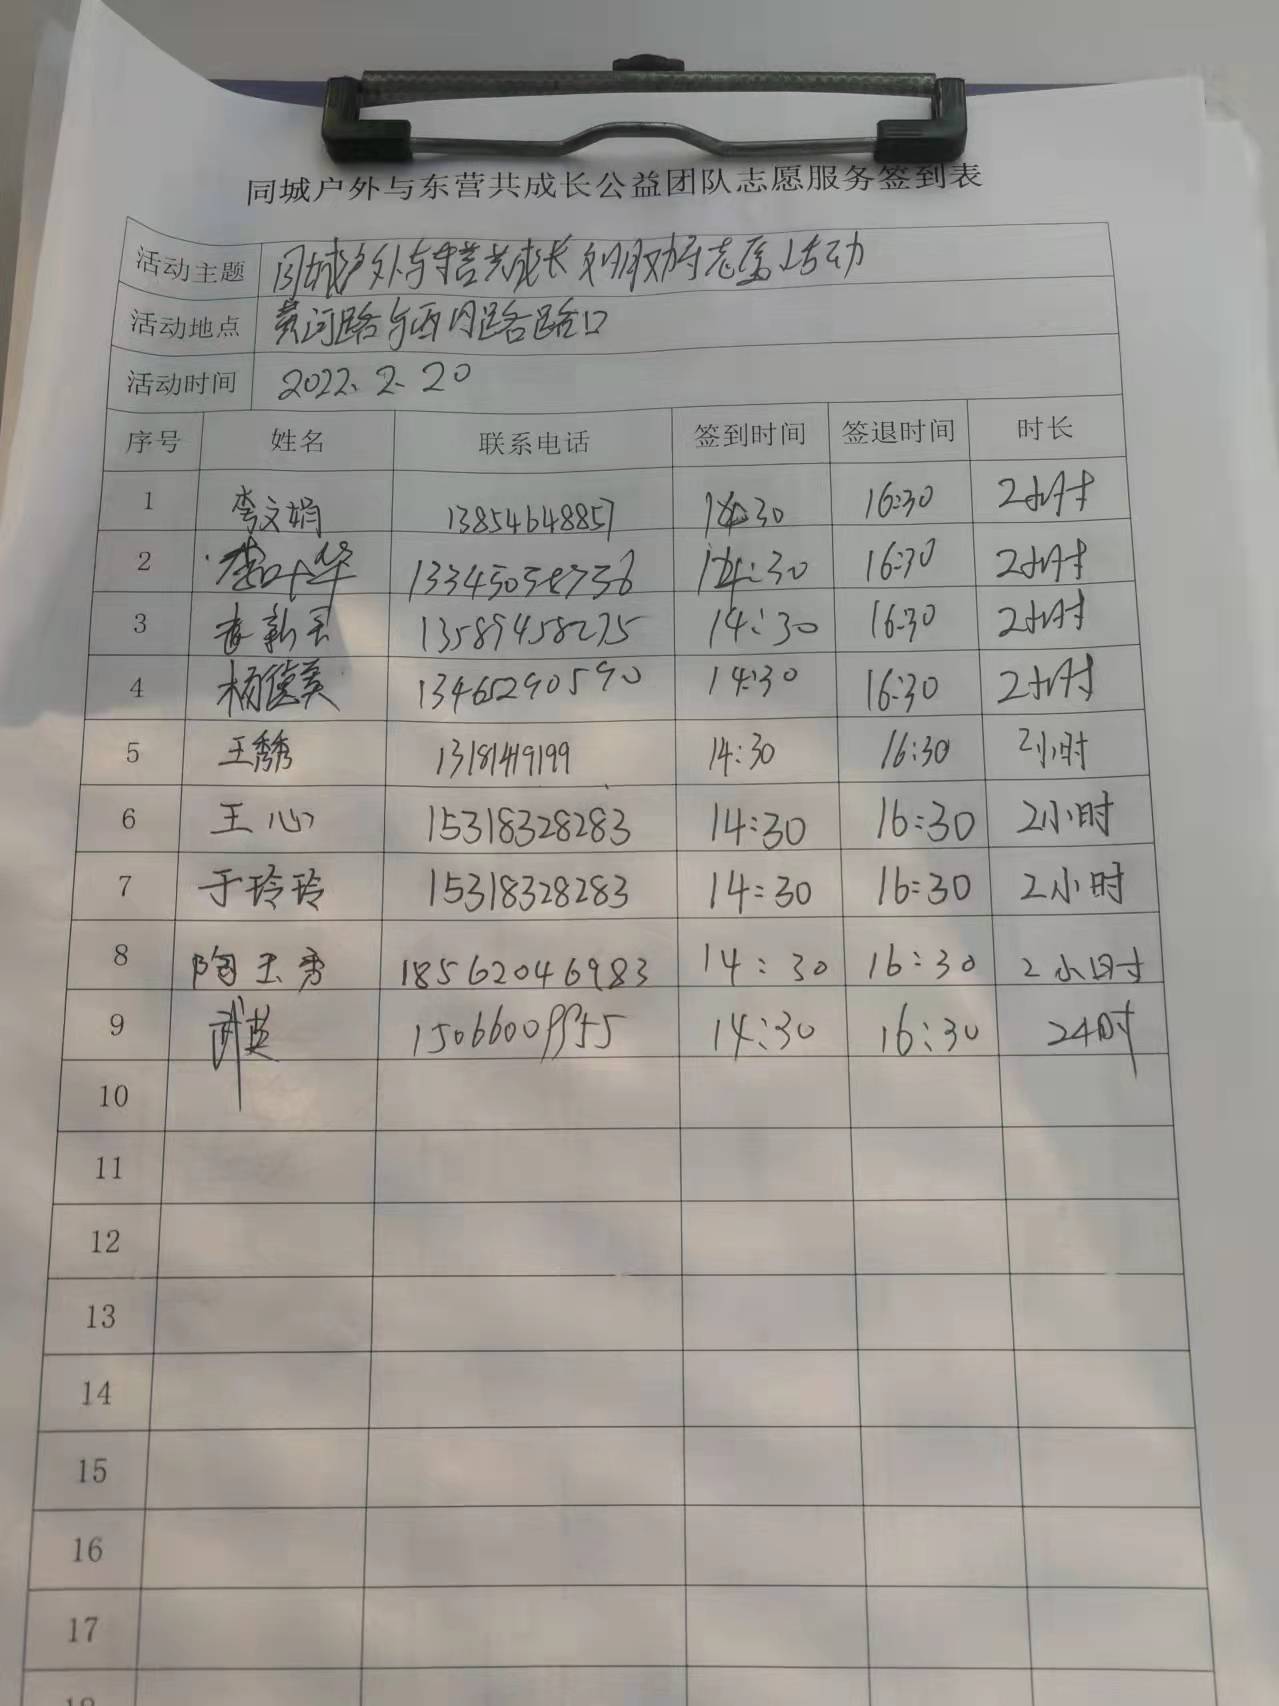 同城户外与东营共成长公益团队志愿服务签到表
活动主题 同城户外与东营共成长文明劝导志愿活动
活动地点 黄河路与西四路路口
活动时间 2022.2.20
序号 姓名 联系电话 签到时间 签退时间 时长
1 李文娟 13854648857 14:30 16:30 2小时
2 李叶华 14:30 16:30 2小时
3 新 13589458275 14:30 16:30 2小时
4 杨德美 13465290590 14:30 16:30 2小时
5 王秀秀 13181419199 14:30 16:30 2小时
6 王心 15318328283 14:30 16:30 2小时
7 于玲玲 15318328283 14:30 16:30 2小时
8 陶玉秀 18562046983 14:30 16:30 2小时
9 武英 15066009955 14:30 16:30 2小时
10
11
12
13
14
15
16
17
18